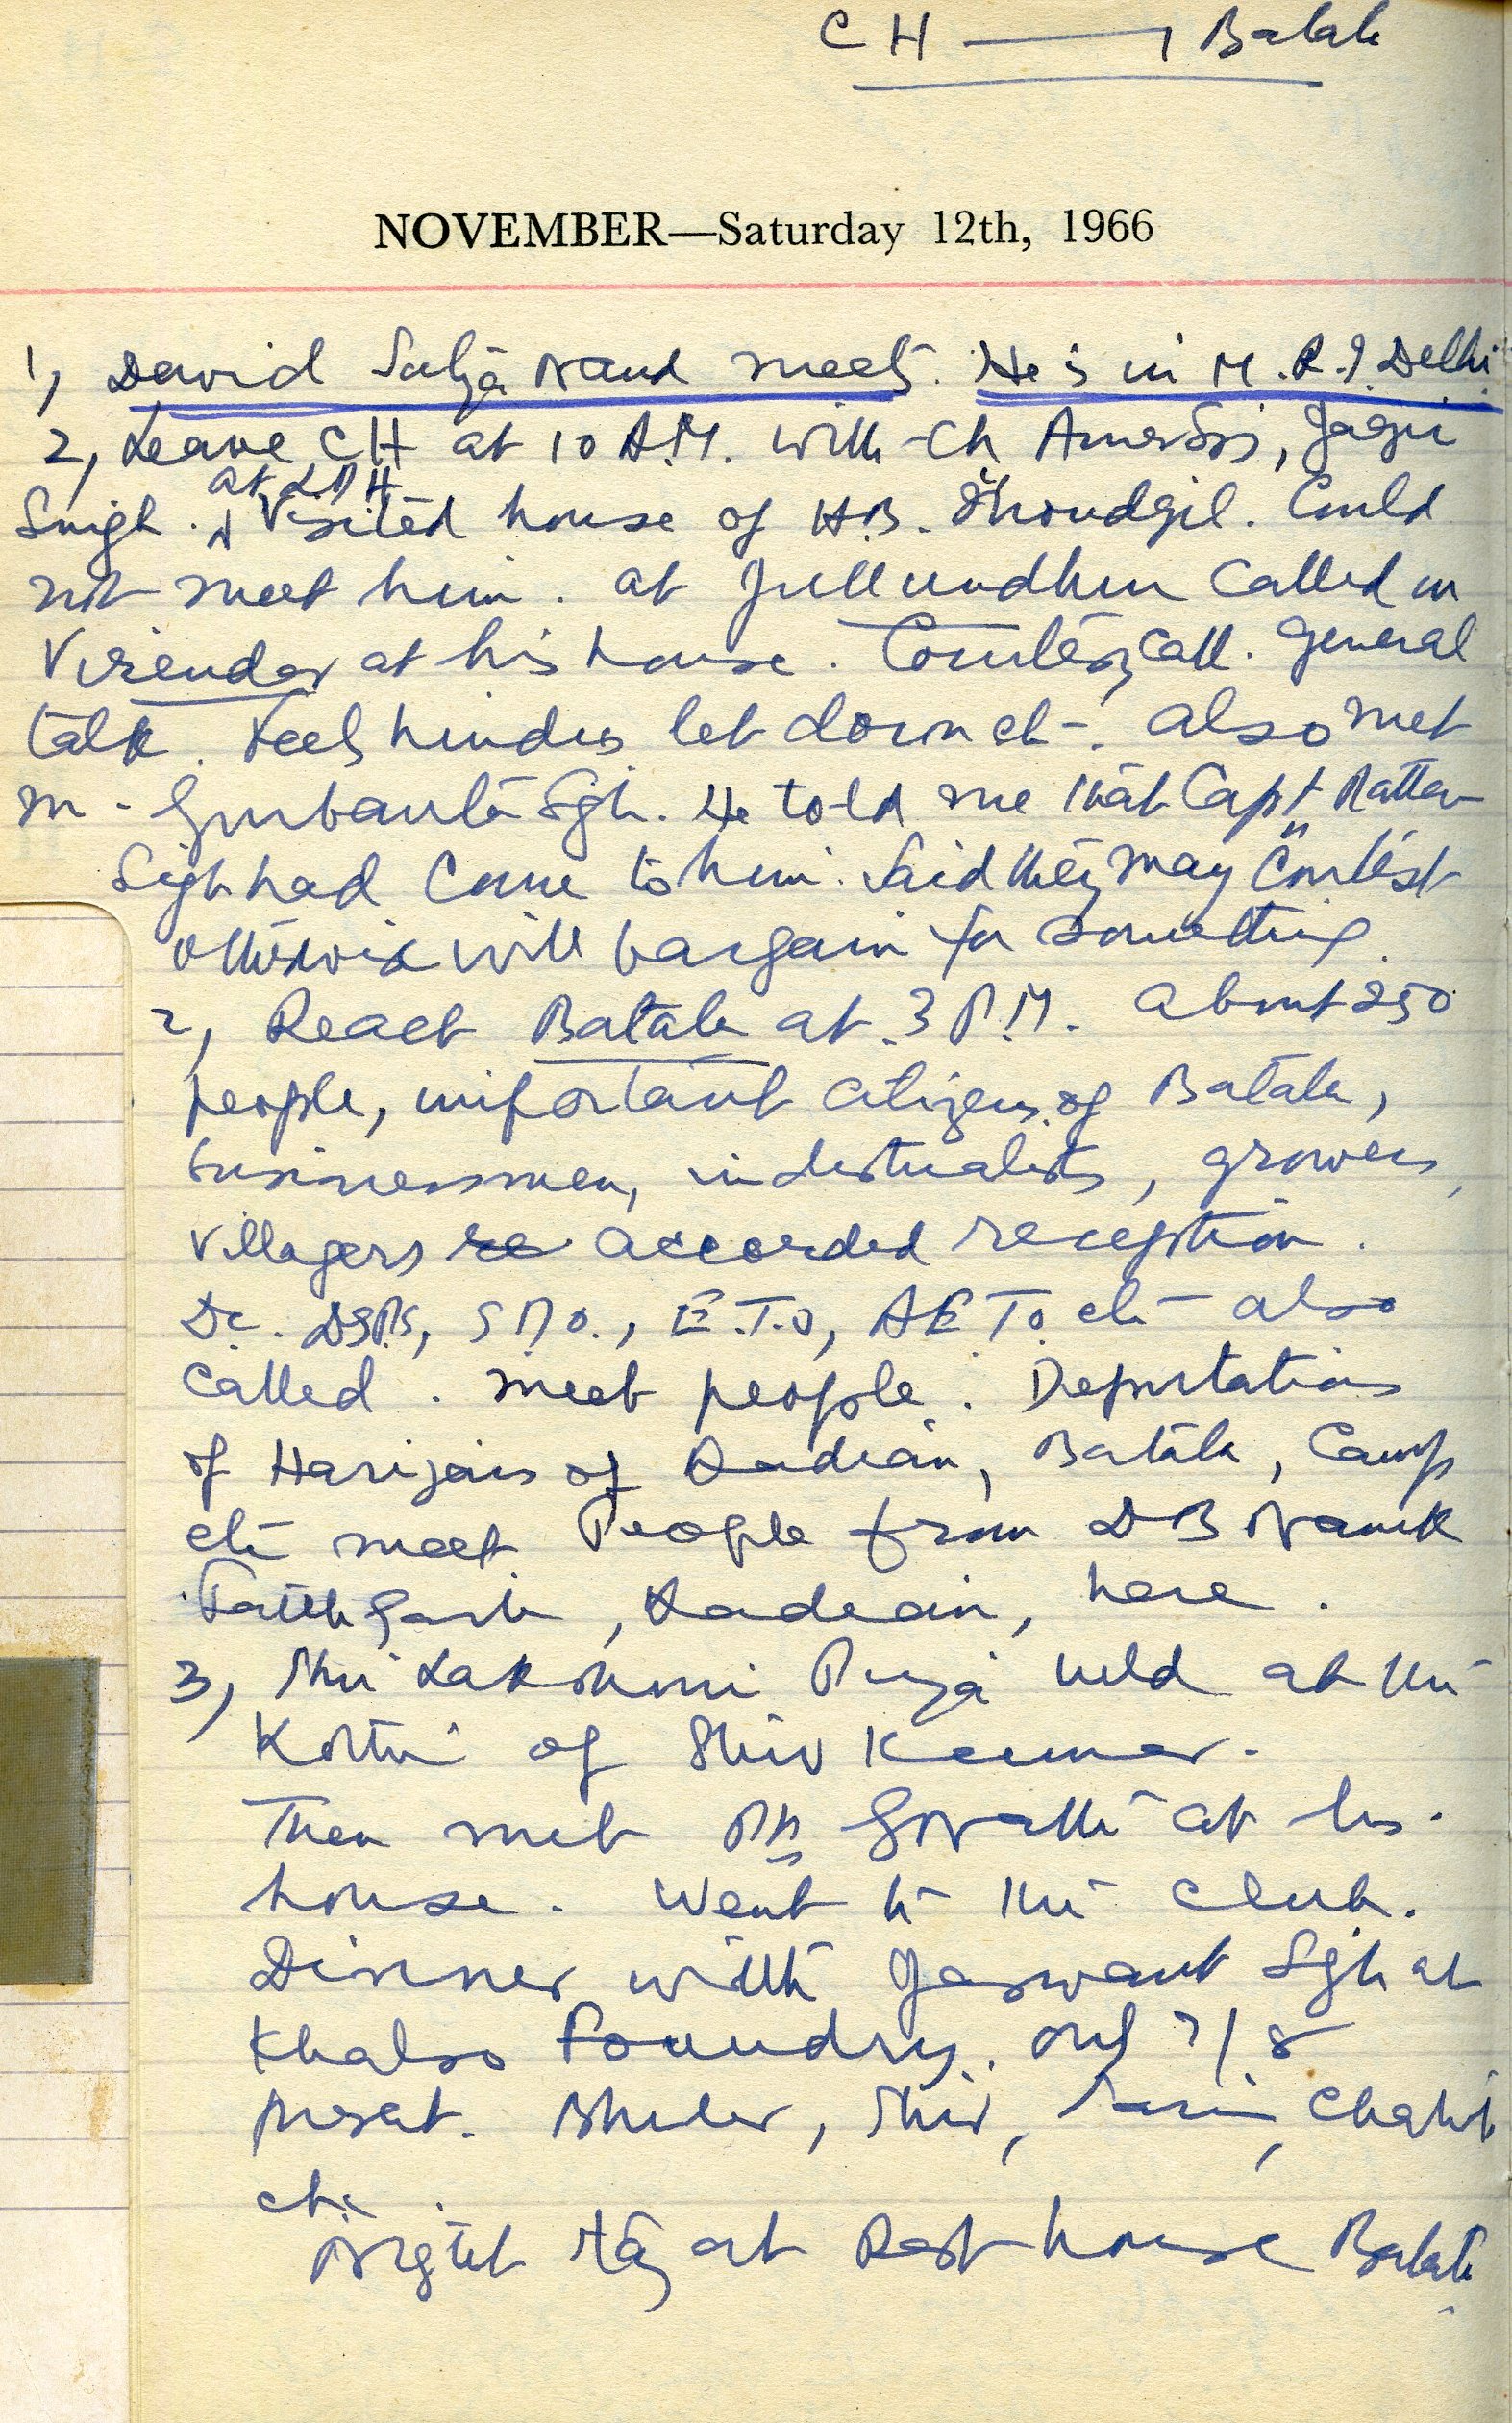 CH — Batala
NOVEMBER—Saturday 12th, 1966
1, David Satya Nand meets. He is in M.R.I. Delhi
2, Leave CH at 10 A.M. with Ch Amar Sgh, Jagir
at LDH
Singh. Visited house of H.B. Shoudgil. Could
not meet him. at Jullundhur called on
Virender at his house. Courtesy call. General
talk. Feels hindus let down etc. also met
m. Gurbanta Sgh. He told me that Capt Rattan
Sigh had come to him. Said they may contest
otherwise will bargain for something.
2, Reach Batala at 3 P.M. about 250
people, important citizens of Batala,
businessmen, industrialists, growers,
villagers accorded reception.
Dc. DSPs, SDO., E.T.O, AETO etc also
called. meet people. Deputations
of Harijans of Kadian, Batala, Camp
etc meet People from DB Nanak
Fatehgarh, Kadeain, here.
3, Shri Lakshmi Puja held at the
Kothi of Shiv Kumar.
Then met at his
house. Went to the club.
Dinner with Jaswant Sgh at
Khalso Foundry. only 7/8
present. Shiv,
etc.
Night stay at Rest house Batala